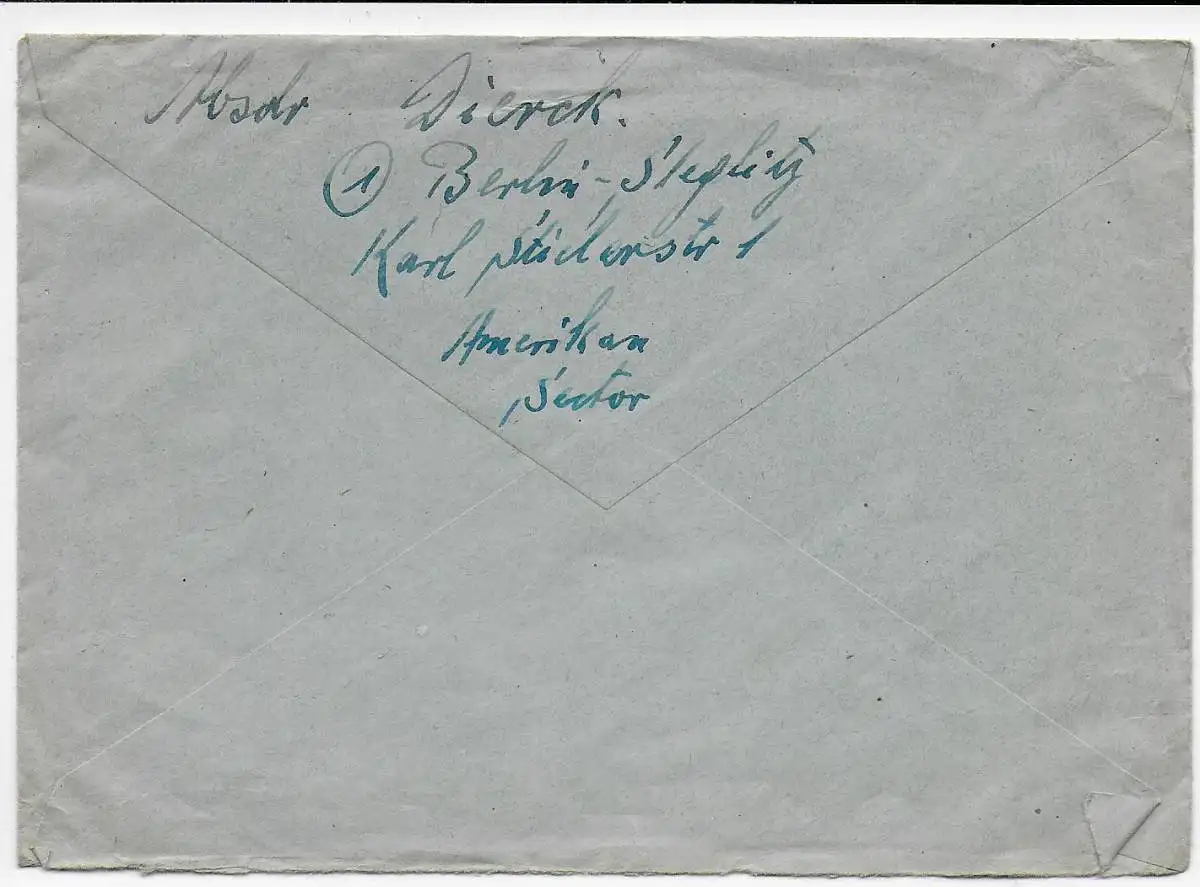 Absdr Dierck.
1 Berlin-Steglitz
Karl Stielerstr 1
Amerikan
Sector